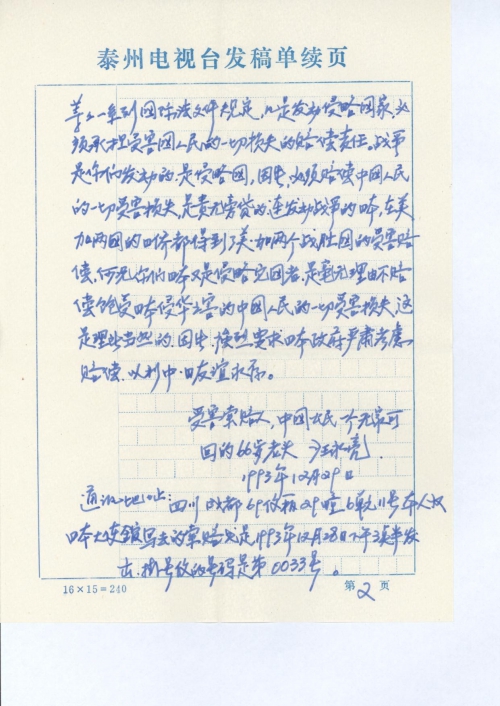 泰州电视台发稿单续页
等一系列国际法文件规定,凡是发动侵略国家,必
须承担受害国人民的一切损失的赔偿责任,战争
是你们发动的.是侵略国,因此,必须赔偿中国人民
的一切受害损失,是责无旁贷的,连发动战争的日本,在美
加两国的日侨都得到了美.加两个战胜国的受害赔
偿,何况你们日本又是侵略
者,是毫无理由不赔
偿饱受日本侵华之害的中国人民的一切受害损失,这
是理所当然的.因此.
要求日本政府严肃考虑
赔偿.以利中.日友谊永存。
受害索赔人,中国公民一个无家可
回的66岁老夫 汪永
1993年12月29日
通讯地址:四川成都69信箱29
6单元11号本人
日本大使馆写去的索赔
是1993年12月28日下午3点半发
出.挂号信的号码是第0033号。
16×15=240
第2页